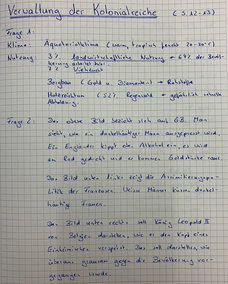 Verwaltung der Kolonialreiche (S. 12-13)
Frage 1:
Klima: Äquatorialklima (warm, tropisch feucht 20-30°C)
Nutzung: 3% landwirtschaftliche Nutzung → 64% der Bevöl-
kerung arbeitet hier.
7% Viehzucht
Bergbau (Gold u. Diamanten) → Rohstoffe
Holzreichtum (52% Regenwald → gefährlich
Abholzung.
Frage 2: Das obere Bild bezieht sich auf GB. Man
sieht, wie ein dunkelhäutiger Mann ausgepresst wird.
Ein Engländer kippt ihm Alkohol ein, es wird
ein Rad gedreht und es kommen Goldstücke raus.
Das Bild unten links zeigt die Assimilierungspo-
litik der Franzosen. Weisse Männer küssen dunkel-
häutige Frauen.
Das Bild unten rechts soll König Leopold II
von Belgien darstellen, wie er den Kopf eines
Einheimischen verspeist. Das soll darstellen, wie
grausam gegen die Bevölkerung vor-
gegangen wurde.